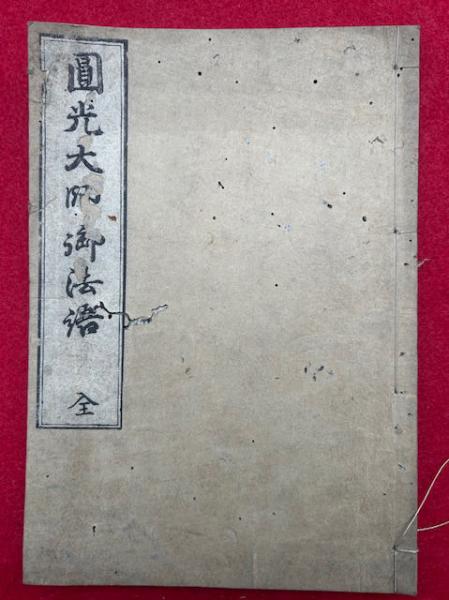 圓光大師御法語 全